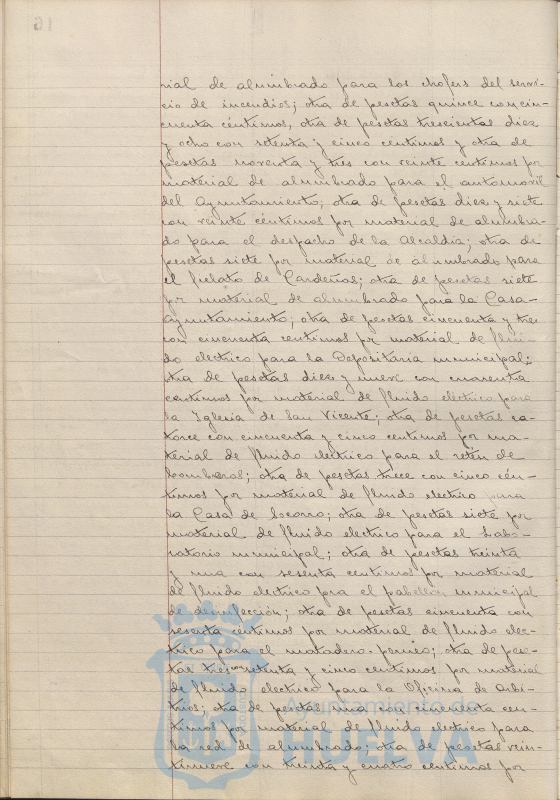 rial de alumbrado para los chofers del servi-
cio de incendios; otra de pesetas quince con cin-
cuenta céntimos, otra de pesetas trescientas diez
y ocho con setenta y cinco centimos y otra de
pesetas noventa y tres con veinte centimos por
material de alumbrado para el automovil
del Ayuntamiento; otra de pesetas diez y siete
con veinte céntimos por material de alumbra-
do para el despacho de la Alcaldía; otra de
pesetas siete por material de alumbrado para
el fielato de Cardeños; otra de pesetas siete
por material de alumbrado para la Casa-
Ayuntamiento; otra de pesetas cincuenta y tres
con cincuenta centimos por material de flúi-
do electrico para la Depositaria municipal;
otra de pesetas diez y nueve con cuarenta
centimos por material de fluido electrico para
la Iglesia de San Vicente; otra de pesetas ca-
torce con cincuenta y cinco centimos por ma-
terial de fluido electrico para el retén de
bomberos; otra de pesetas trece con cinco cén-
timos por material de fluido electrico para
la Casa de Socorro; otra de pesetas siete por
material de fluido electrico para el Labo-
ratorio municipal; otra de pesetas treinta
y una con sesenta centimos por material
de fluido electrico pra el pabellón municipal
de desinfección; otra de pesetas cincuenta con
sesenta céntimos por material de fluido elec-
trico para el matadero publico; otra de pese-
tas tres con setenta y cinco centimos por material
de fluido electrico para la Oficina de Arbi-
trios; otra de pesetas una con cincuenta cen-
timos por material de fluido electrico para
la red de alumbrado; otra de pesetas vein-
tinueve con treinta y cuatro centimos por
Ayuntamiento de
HUELVA